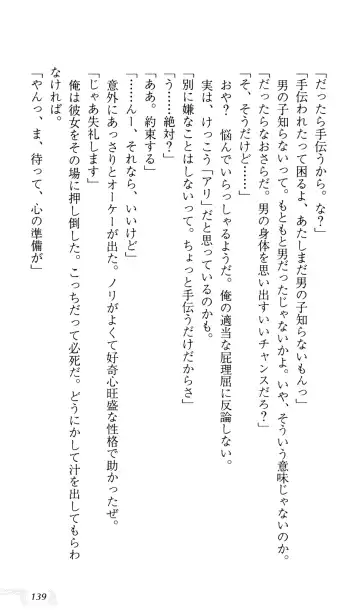 「だったら手伝うから。な？」
「手伝われたって困るよ、あたしまだ男の子知らないもんっ」
男の子知らないって。もともと男だったじゃないかよ。いや、そういう意味じゃないのか。
「だったらなおさらだ。男の身体を思い出すいいチャンスだろ？」
「そ、そうだけど……」
おや？　悩んでいらっしゃるようだ。俺の適当な屁理屈に反論しない。
実は、けっこう「アリ」だと思っているのかも。
「別に嫌なことはしないって。ちょっと手伝うだけだからさ」
「う……絶対？」
「ああ。約束する」
「……んー、それなら、いいけど」
意外にあっさりとオーケーが出た。ノリがよくて好奇心旺盛な性格で助かったぜ。
「じゃあ失礼します」
俺は彼女をその場に押し倒した。こっちだって必死だ。どうにかして汁を出してもらわ
なければ。
「やんっ、ま、待って、心の準備が」
139